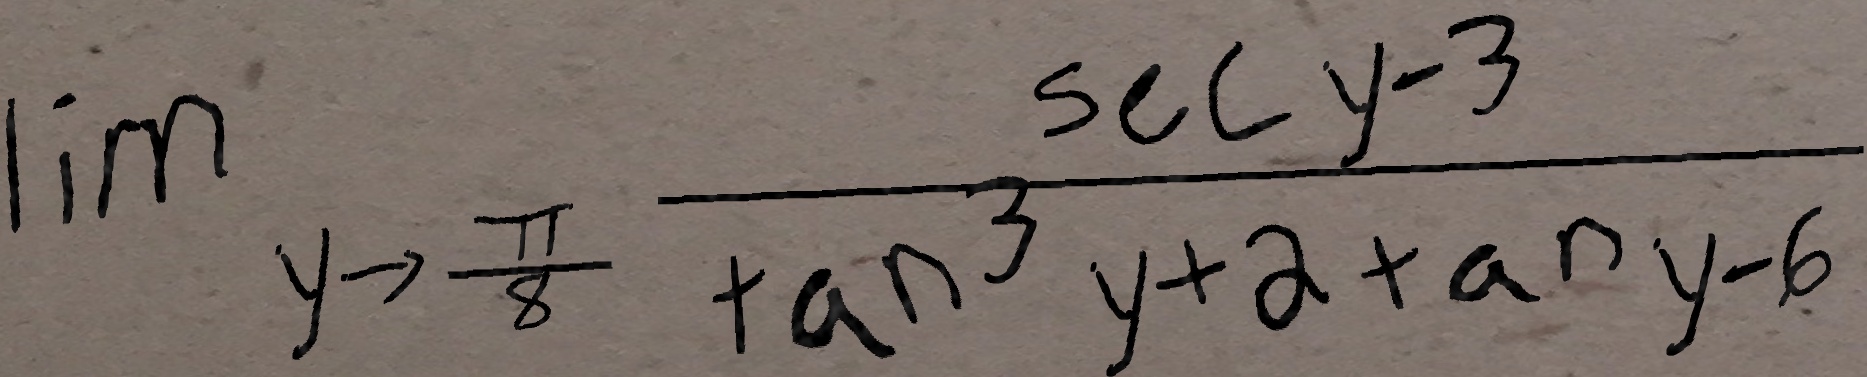 \lim_{y \to \frac{\pi}{8}} \frac{\sec y - 3}{\tan^3 y + 2 \tan y - 6}